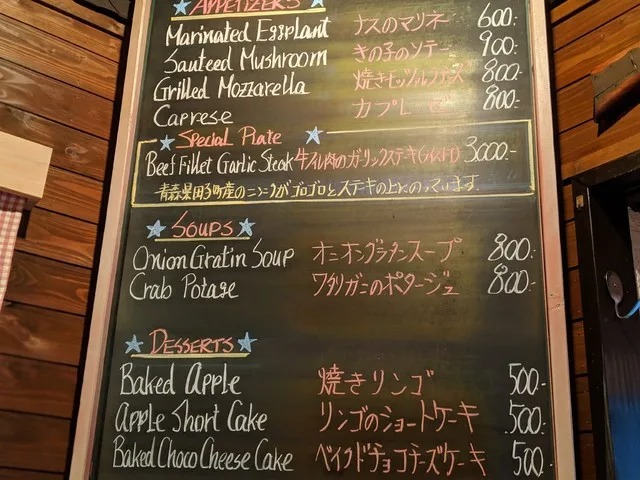 APPETIZERS
Marinated Eggplant ナスのマリネ 600.-
Sauteed Mushroom きの子のソテー 900.-
Grilled Mozzarella 焼きモッツァレラチーズ 800.-
Caprese カプレーゼ 800.-
Special Plate
Beef Fillet Garlic Steak 牛フィレ肉のガーリックステキ 3000.-
青森県田子町産のニンニクがゴロゴロとステーキの上にのっています。
SOUPS
Onion Gratin Soup オニオングラタンスープ 800.-
Crab Potage ワタリガニのポタージュ 800.-
DESSERTS
Baked Apple 焼きリンゴ 500.-
Apple Short Cake リンゴのショートケーキ 500.-
Baked Choco Cheese Cake ベイクドチョコチーズケーキ 500.-